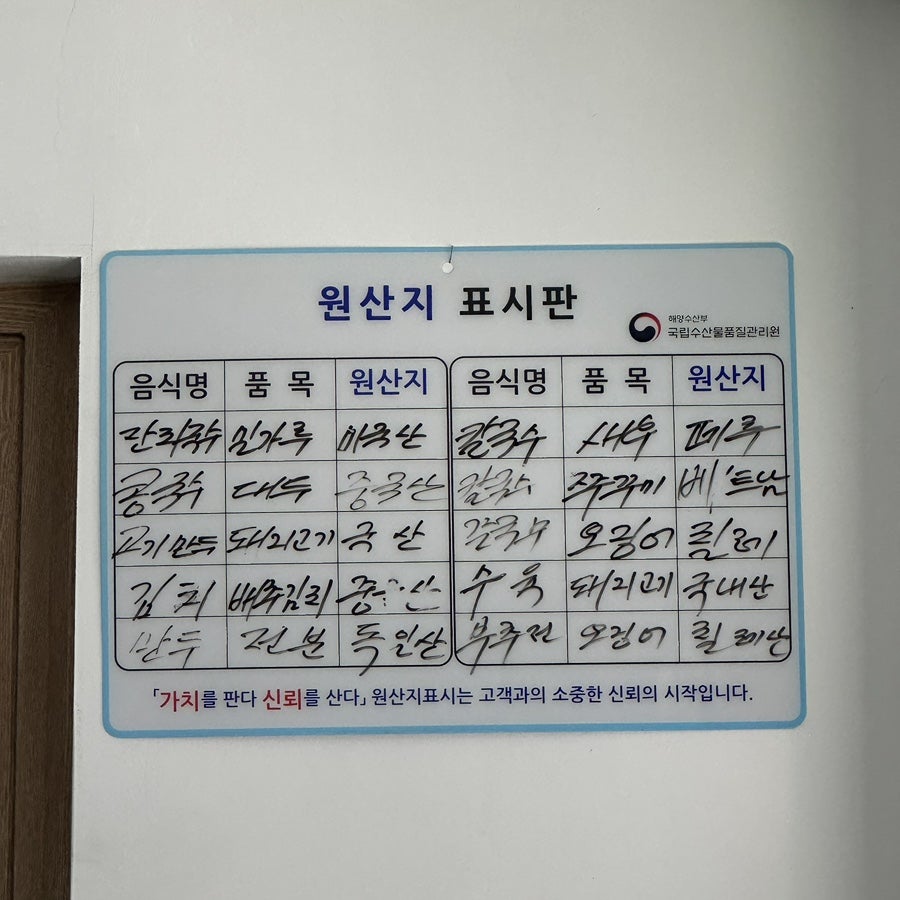 원산지 표시판
해양수산부
국립수산물품질관리원
음식명 품목 원산지 음식명 품목 원산지
밀가루 미국산 칼국수 새우 페루
콩국수 대두 중국산 칼국수 쭈꾸미 베트남
고기만두 돼지고기 국산 칼국수 오징어 칠레
김치 수육 돼지고기 국내산
만두 전분 독일산 부추전 오징어 칠레산
「가치를 판다 신뢰를 산다」 원산지표시는 고객과의 소중한 신뢰의 시작입니다.